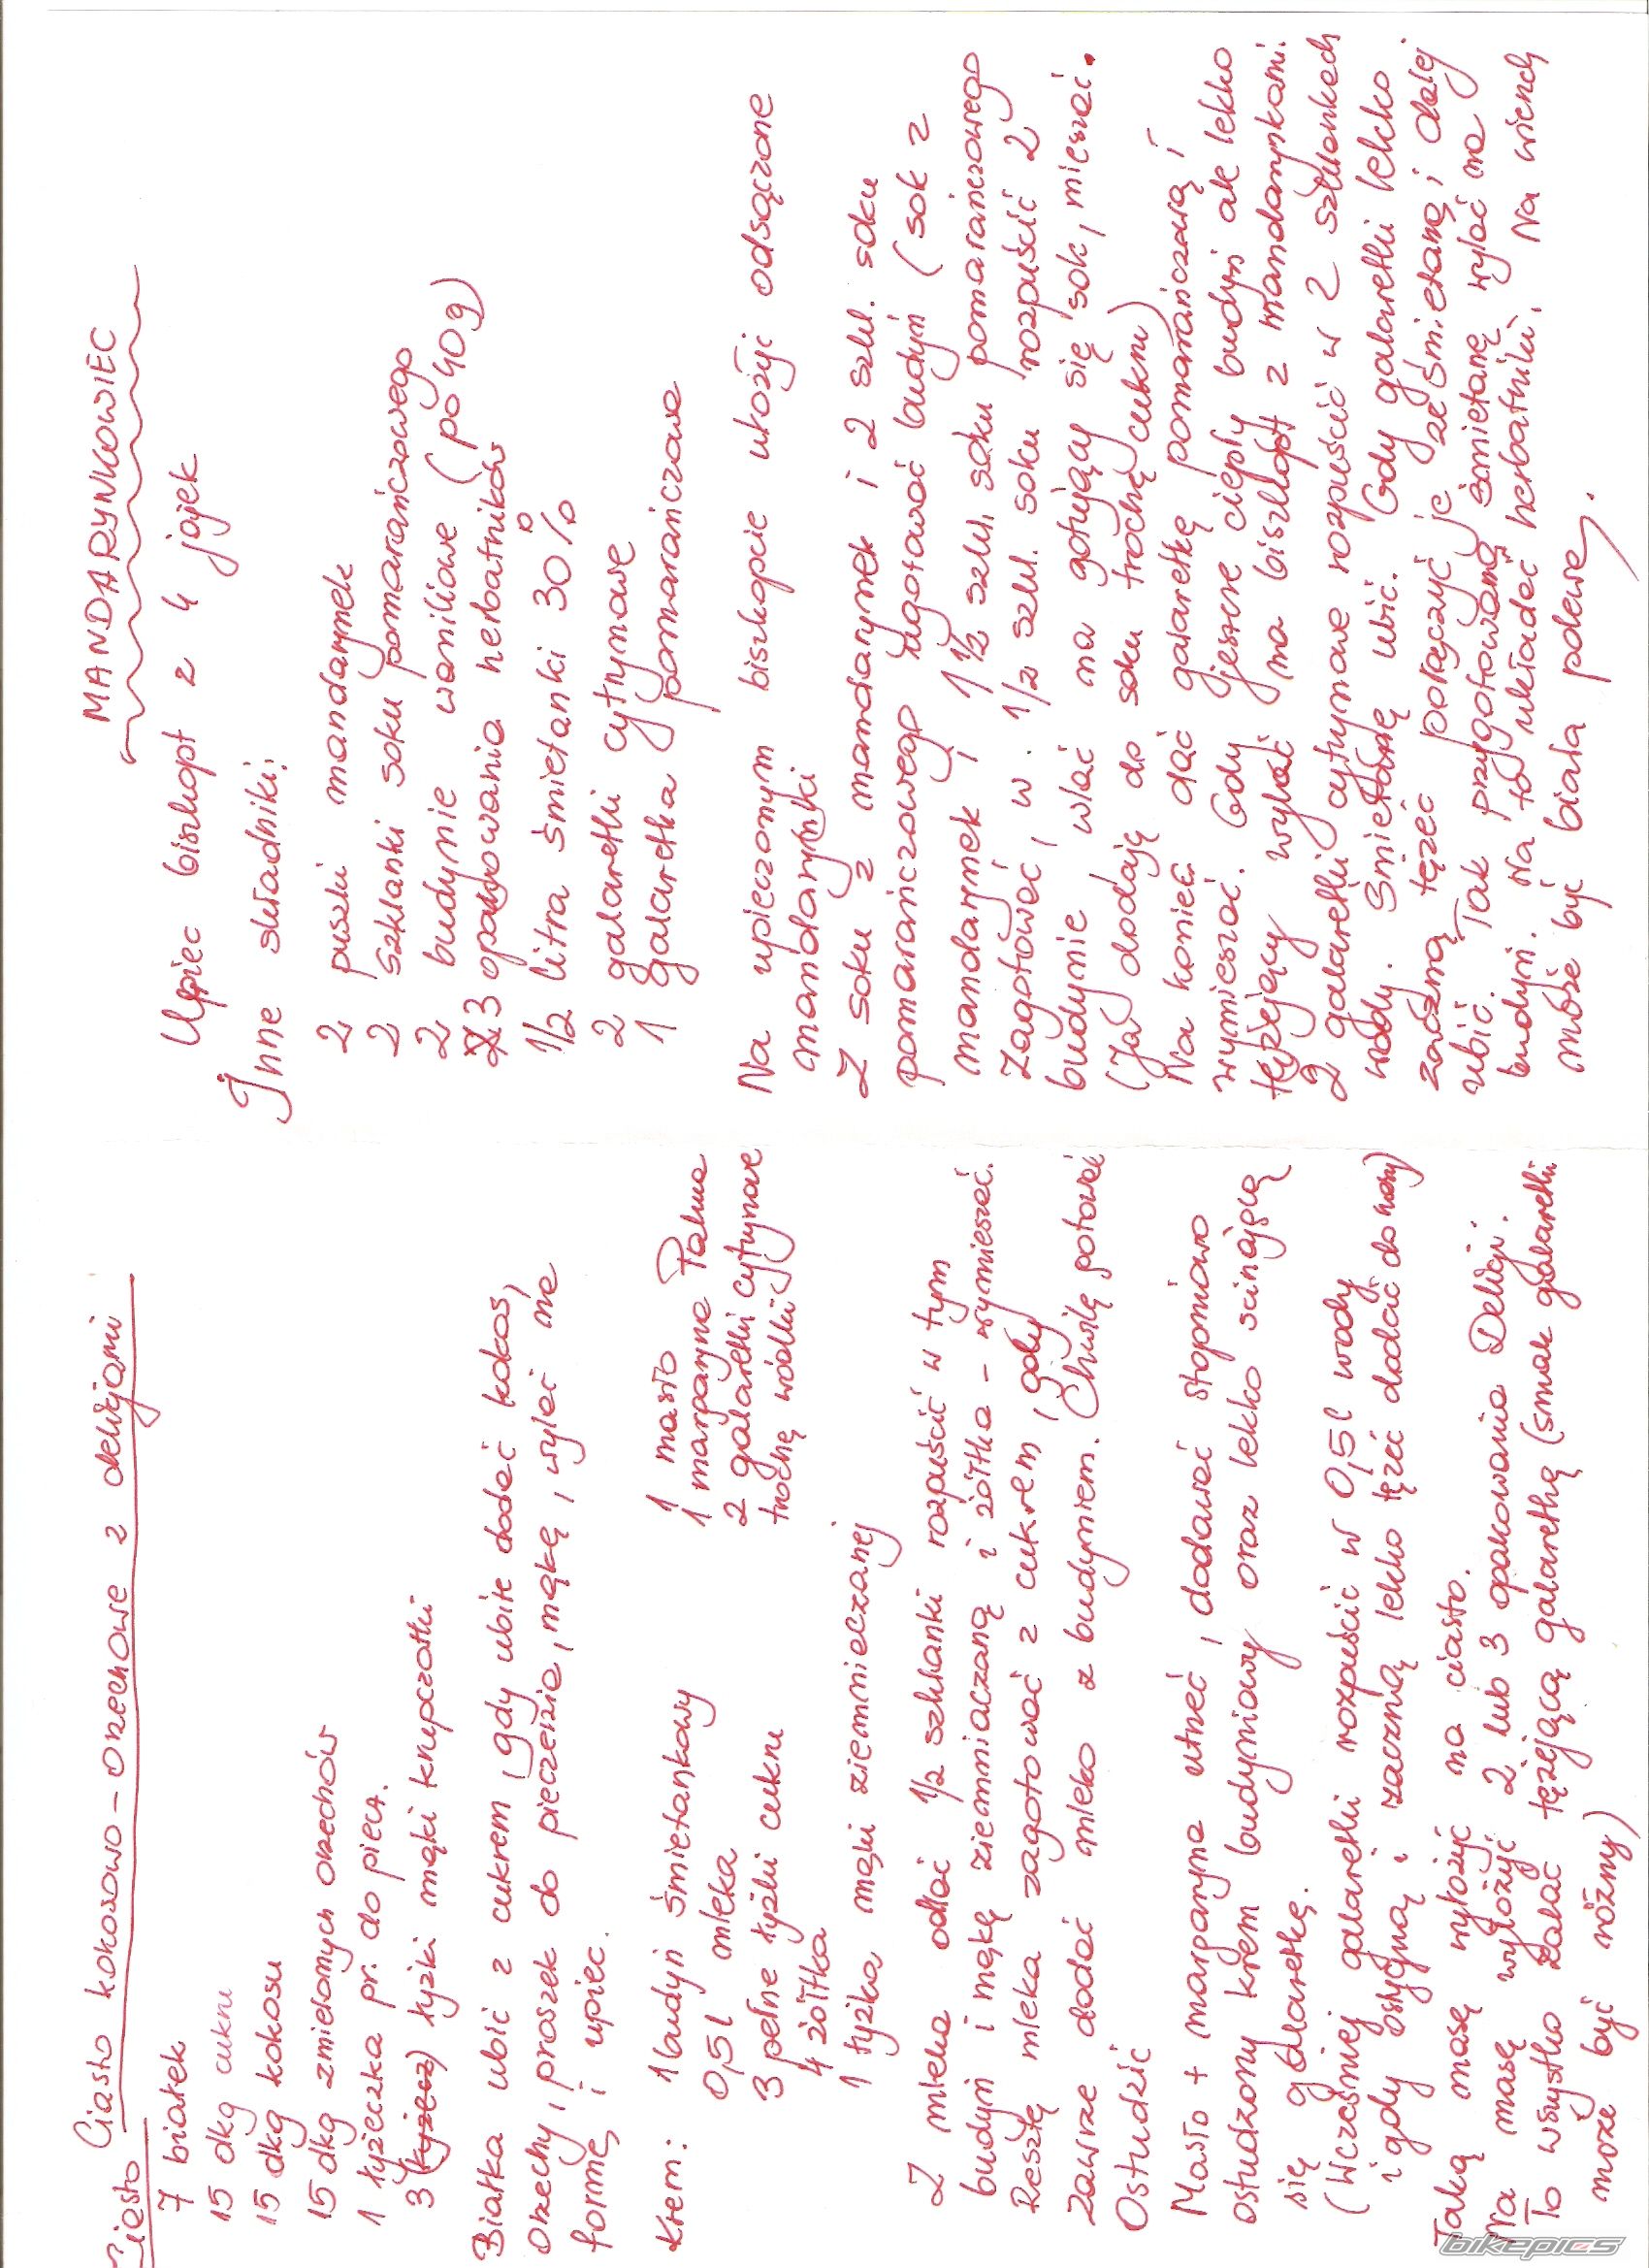 Ciasto kokosowo - orzechowe z delicjami
Ciasto
7 białek
15 dkg cukru
15 dkg kokosu
15 dkg zmielonych orzechów
1 łyżeczka pr. do piecz.
3 (łyżecz) łyżki mąki krupczatki
Białka ubić z cukrem, gdy ubite dodać kokos,
orzechy, proszek do pieczenia, mąkę, wylać na
formę i upiec.
Krem: 1 budyń śmietankowy
0,5 l mleka
3 pełne łyżki cukru
4 żółtka
1 łyżka mąki ziemniaczanej
1 masło
1 margaryna Palma
2 galaretki cytrynowe
trochę wódki
Z mleka odlać 1/2 szklanki rozpuścić w tym
budyń i mąkę ziemniaczaną i żółtka - wymieszać.
Resztę mleka zagotować z cukrem, gdy
zawrze dodać mleko z budyniem. Chwilę gotować
Ostudzić
Masło + margaryna utrzeć, dodawać stopniowo
ostudzony krem budyniowy oraz lekko ścinającą
się galaretkę.
(Wcześniej galaretki rozpuścić w 0,5 l wody
i gdy ostygną i zaczną lekko tężeć dodać do masy)
Taką masę wyłożyć na ciasto.
Na masę wyłożyć 2 lub 3 opakowania Delicji.
To wszystko zalać tężejącą galaretką (smak galaretki
może być różny)
MANDARYNKOWIEC
Upiec biszkopt z 4 jajek
Inne składniki:
2 puszki mandarynek
2 szklanki soku pomarańczowego
2 budynie waniliowe (po 40 g)
3 opakowania herbatników
1/2 litra śmietanki 30%
2 galaretki cytrynowe
1 galaretka pomarańczowa
Na upieczonym biszkopcie ułożyć odsączone
mandarynki
Z soku z mandarynek i 2 szkl. soku
pomarańczowego ugotować budyń (sok z
mandarynek, 1 1/2 szkl. soku pomarańczowego
zagotować, w 1/2 szkl. soku rozpuścić 2
budynie wlać na gotujący się sok, mieszać.
(Ja dodaję do soku trochę cukru)
Na koniec dać galaretkę pomarańczową i
wymieszać. Gdy jeszcze ciepły budyń ale lekko
tężejący wylać na biszkopt z mandarynkami.
2 galaretki cytrynowe rozpuścić w 2 szklankach
wody. Śmietanę ubić. Gdy galaretki lekko
zaczną tężeć połączyć je ze śmietaną i dalej
ubić. Tak przygotowaną śmietanę wylać na
budyń. Na to układać herbatniki. Na wierzch
może być biała polewa.
bikepics